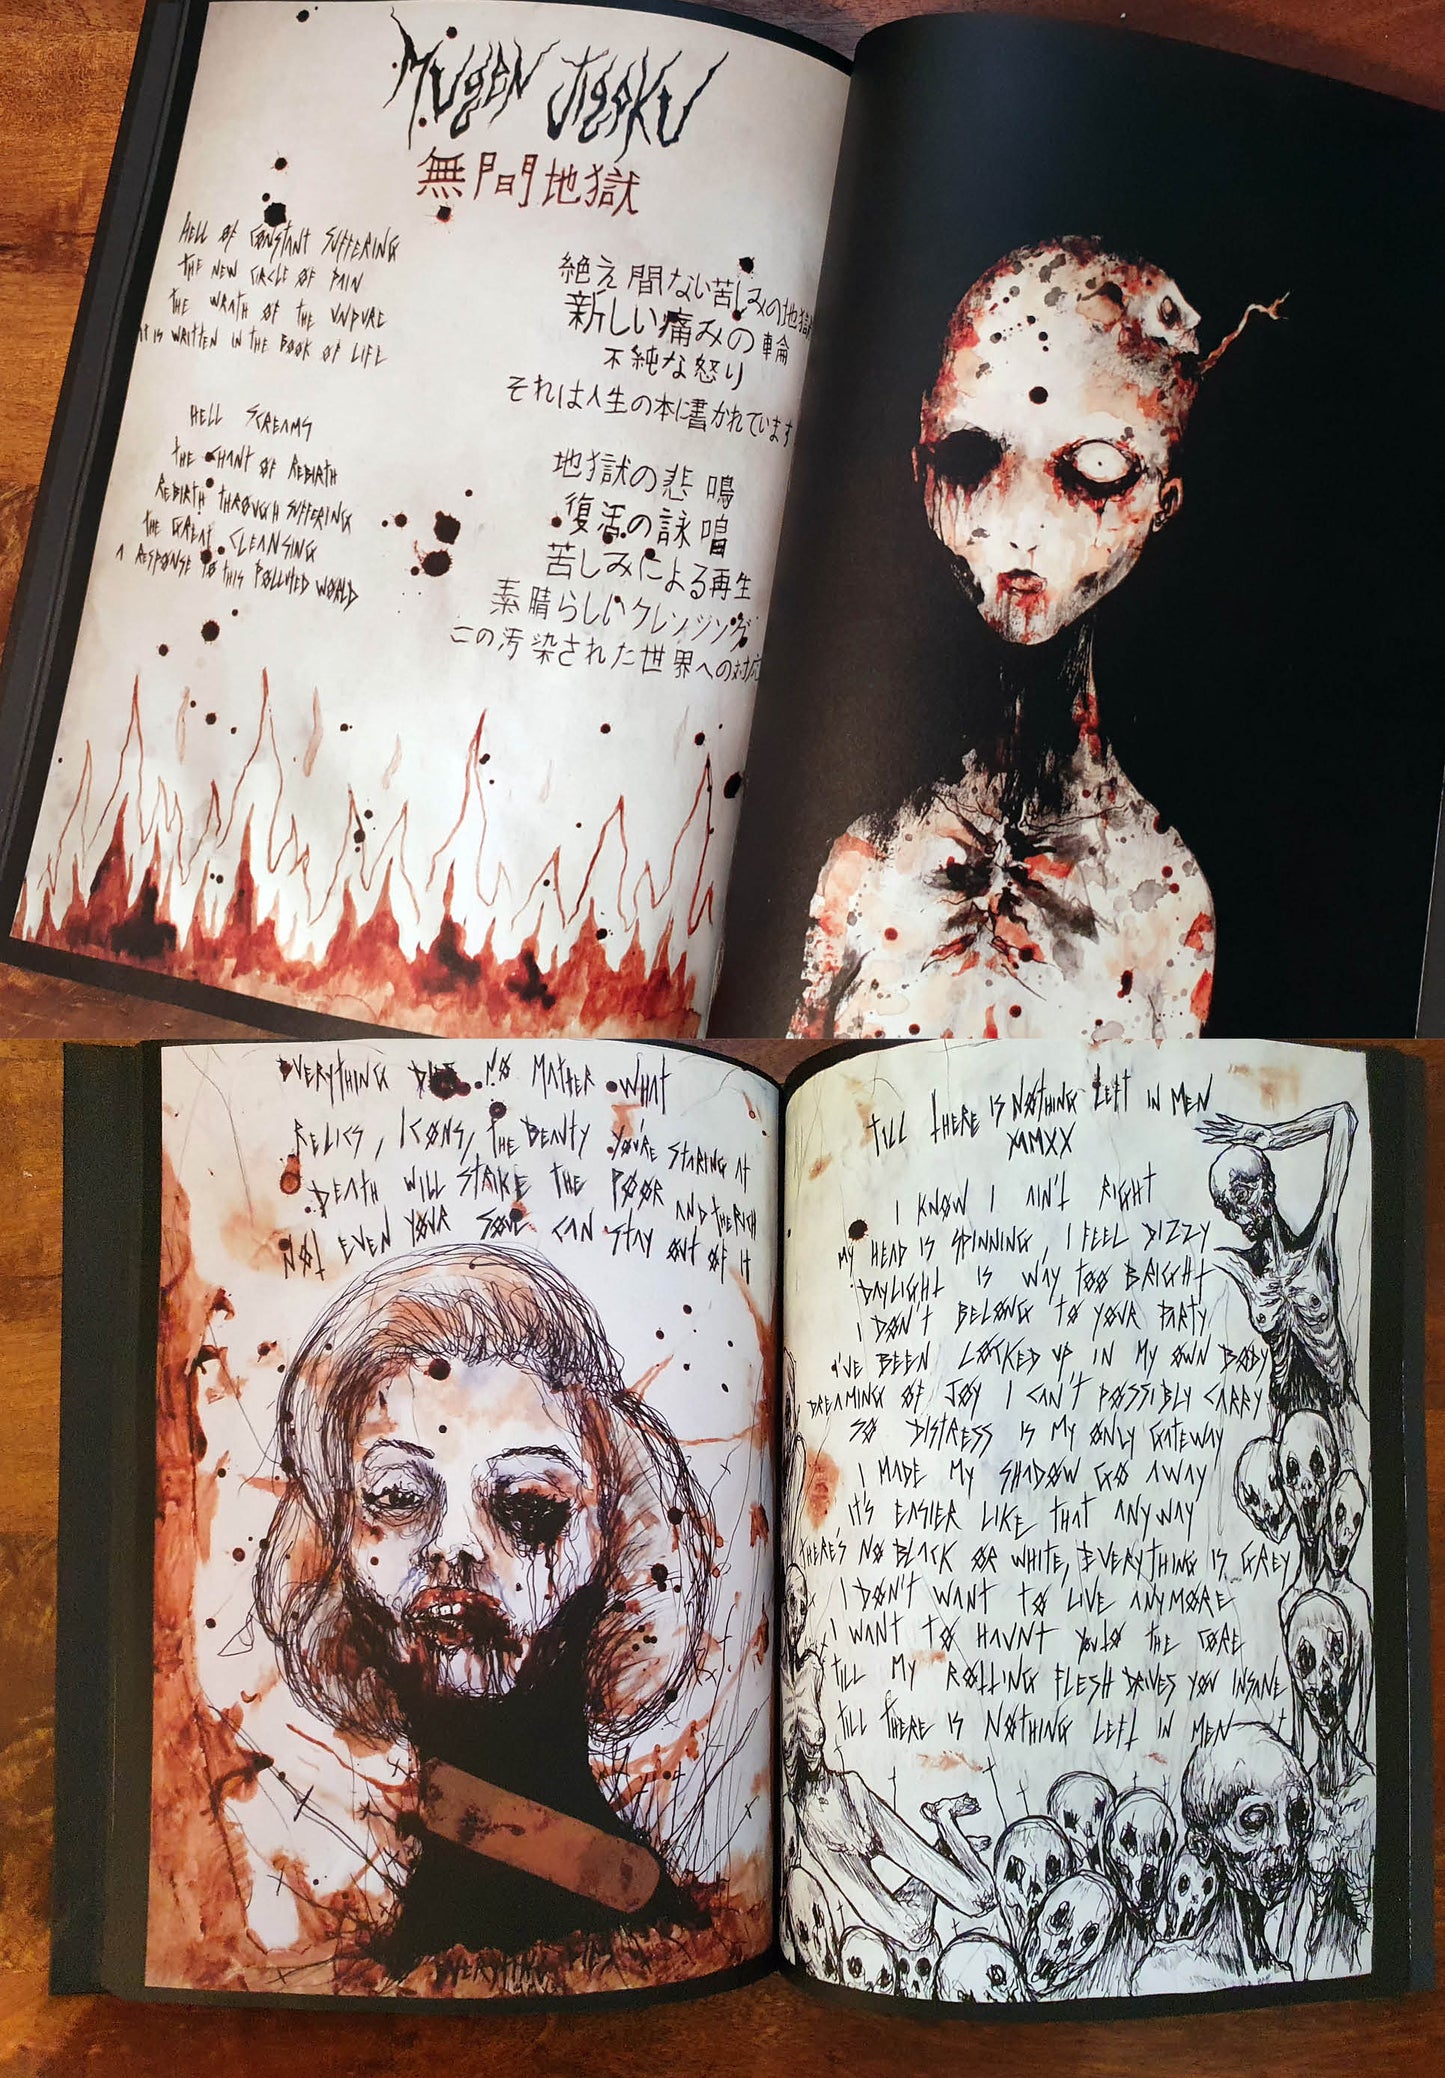 MUGEN JIGOKU
無間地獄
HELL ØF CØNSTANT SUFFERING
THE NEW CIRCLE OF PAIN
THE WRATH ØF THE UNPURE
IT IS WRITTEN IN THE BØØK ØF LIFE
HELL SCREAMS
THE CHANT ØF REBIRTH
REBIRTH THRØUGH SUFFERING
THE GREAT CLEANSING
A RESPØNSE TØ THIS PØLLUTED WØRLD
絶え間ない苦しみの地獄
新しい痛みの輪
不純な怒り
それは人生の本に書かれています
地獄の悲鳴
復活の詠唱
苦しみによる再生
素晴らしいクレンジング
この汚染された世界への対応
EVERYTHING DIES NØ MATTER WHAT
RELICS, ICØNS, THE BEAUTY YØU'RE STARING AT
DEATH WILL STRIKE THE PØØR AND THE RICH
NØT EVEN YØUR SØUL CAN STAY ØUT ØF IT
EVERYTHING DIES
TILL THERE IS NØTHING LEFT IN MEN
MMXX
I KNØW I AIN'T RIGHT
MY HEAD IS SPINNING, I FEEL DIZZY
DAYLIGHT IS WAY TØØ BRIGHT
I DØN'T BELØNG TØ YØUR PARTY
I'VE BEEN LØCKED UP IN MY ØWN BØDY
DREAMING ØF JØY I CAN'T PØSSIBLY CARRY
SØ DISTRESS IS MY ØNLY GATEWAY
I MADE MY SHADØW GØ AWAY
IT'S EASIER LIKE THAT ANYWAY
THERE'S NØ BLACK ØR WHITE, EVERYTHING IS GREY
I DØN'T WANT TØ LIVE ANYMØRE
I WANT TØ HAUNT YØU TØ THE CØRE
TILL MY RØTTING FLESH DRIVES YØU INSANE
TILL THERE IS NØTHING LEFT IN MEN